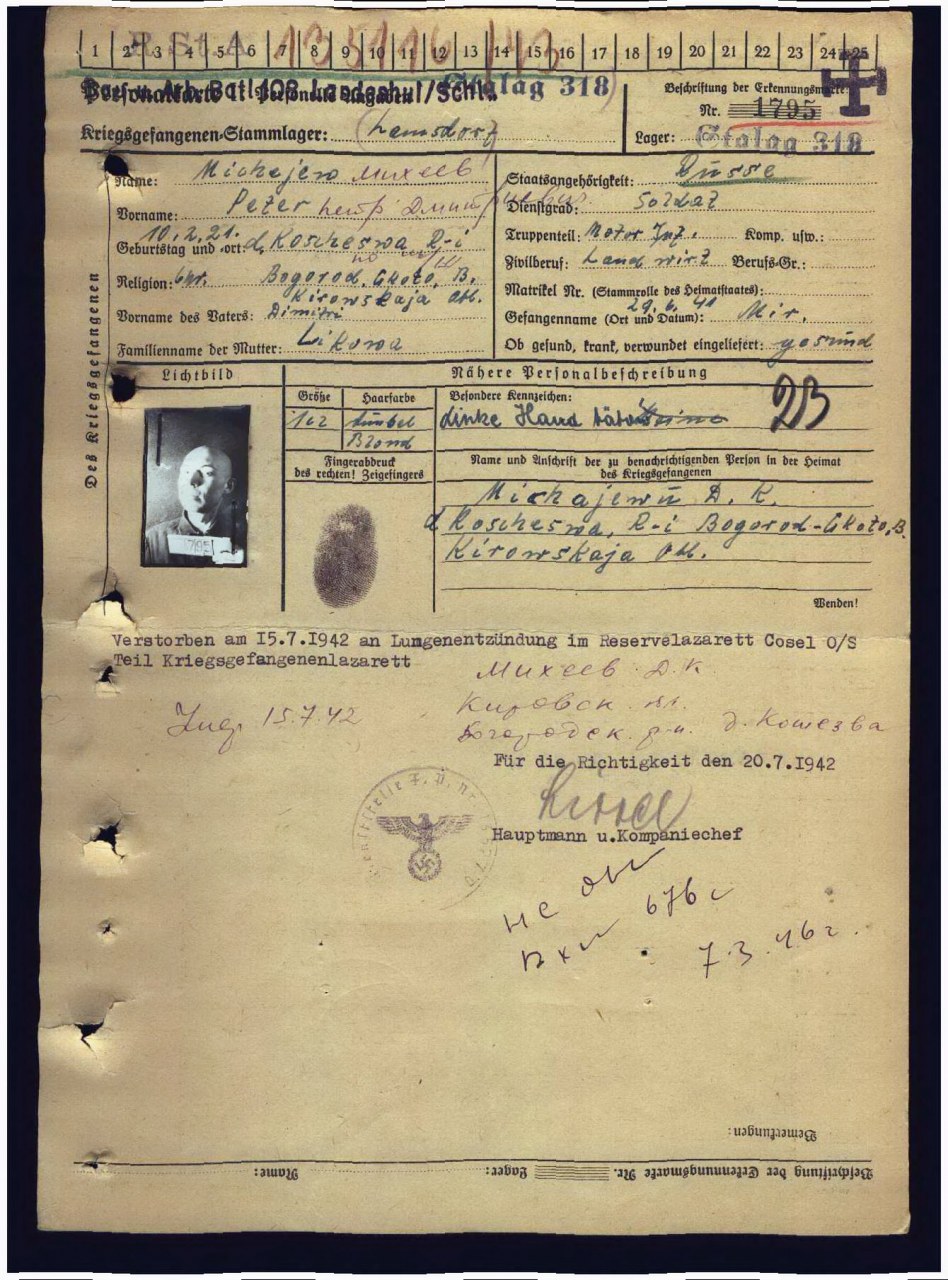 R.St.A 135116/43
1 2 3 4 5 6 7 8 9 10 11 12 13 14 15 16 17 18 19 20 21 22 23 24 25
Bau u. Arb. Batl. 108 Landeshut/Schl. Stalag 318
Kriegsgefangenen-Stammlager: Lamsdorf
Beschriftung der Erkennungsmarke
Nr. 1795
Lager: Stalag 318
Des Kriegsgefangenen
Name: Michajew Михеев
Vorname: Peter Петр
Geburtstag und -ort: 10.2.21. d. Koscheswa, R-i
Religion: Bogorod.
Kirowskaja Obl.
Vorname des Vaters: Dimitri
Familienname der Mutter: Likowa
Staatsangehörigkeit: Russe
Dienstgrad: Soldat
Truppenteil: Motor Inf. Komp. usw.:
Zivilberuf: Landwirt Berufs-Gr.:
Matrikel Nr. (Stammrolle des Heimatstaates):
Gefangennahme (Ort und Datum): 29.6.41 Mir.
Ob gesund, krank, verwundet eingeliefert: gesund
Lichtbild
Nähere Personalbeschreibung
Größe
Haarfarbe
dunkel
Blond
Besondere Kennzeichen:
linke Hand
Fingerabdruck
des rechten! Zeigefingers
Name und Anschrift der zu benachrichtigenden Person in der Heimat
des Kriegsgefangenen
Michajew D. K.
d. Koscheswa, R-i Bogorod-
Kirowskaja Obl.
1795
Wenden!
Verstorben am I5.7.I942 an Lungenentzündung im Reservelazarett Cosel O/S
Teil Kriegsgefangenenlazarett
Михеев Д. К.
Кировск
15.7.42
Богородск р-н. д. Кошезва
Für die Richtigkeit den 20.7.I942
Hauptmann u.Kompaniechef
7.3.46г.
Bemerkungen:
Beschriftung der Erkennungsmarke Nr. Lager: Name: